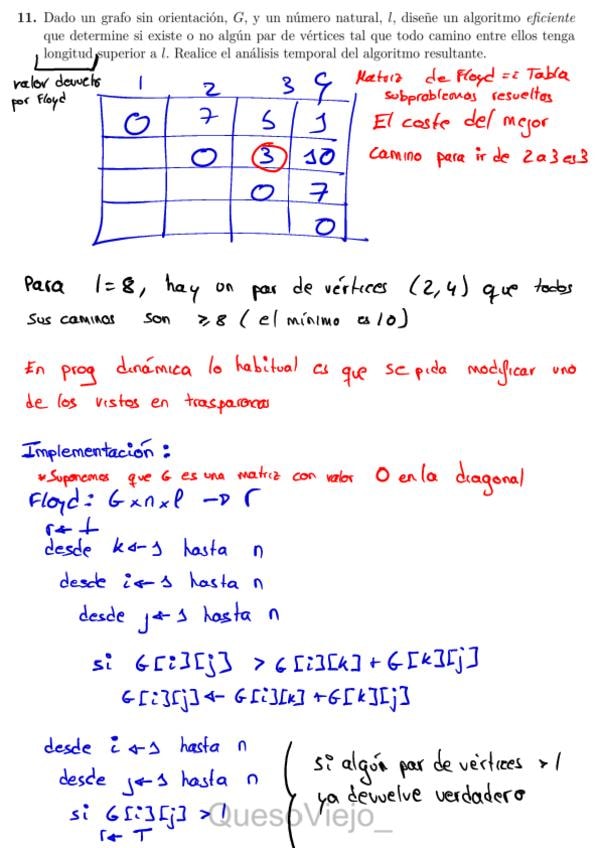 11. Dado un grafo sin orientación, G, y un número natural, l, diseñe un algoritmo eficiente
que determine si existe o no algún par de vértices tal que todo camino entre ellos tenga
longitud superior a l. Realice el análisis temporal del algoritmo resultante.
valor devuelto
por Floyd
1 2 3 4
0 7 5 1
0 3 10
0 7
0
Matriz de Floyd = Tabla
subproblemas resueltos
El coste del mejor
camino para ir de 2 a 3 es 3
Para l=8, hay un par de vértices (2,4) que todos
sus caminos son ≥8 (el mínimo es 10)
En prog dinámica lo habitual es que se pida modificar uno
de los vistos en trasparencias
Implementación:
*Suponemos que G es una matriz con valor 0 en la diagonal
Floyd: G x n x l → r
r ← ⊥
desde k ← 1 hasta n
desde i ← 1 hasta n
desde j ← 1 hasta n
si G[i][j] > G[i][k] + G[k][j]
G[i][j] ← G[i][k] + G[k][j]
desde i ← 1 hasta n
desde j ← 1 hasta n
si G[i][j] > l
r ← T
si algún par de vértices > l
ya devuelve verdadero
QuesoViejo_